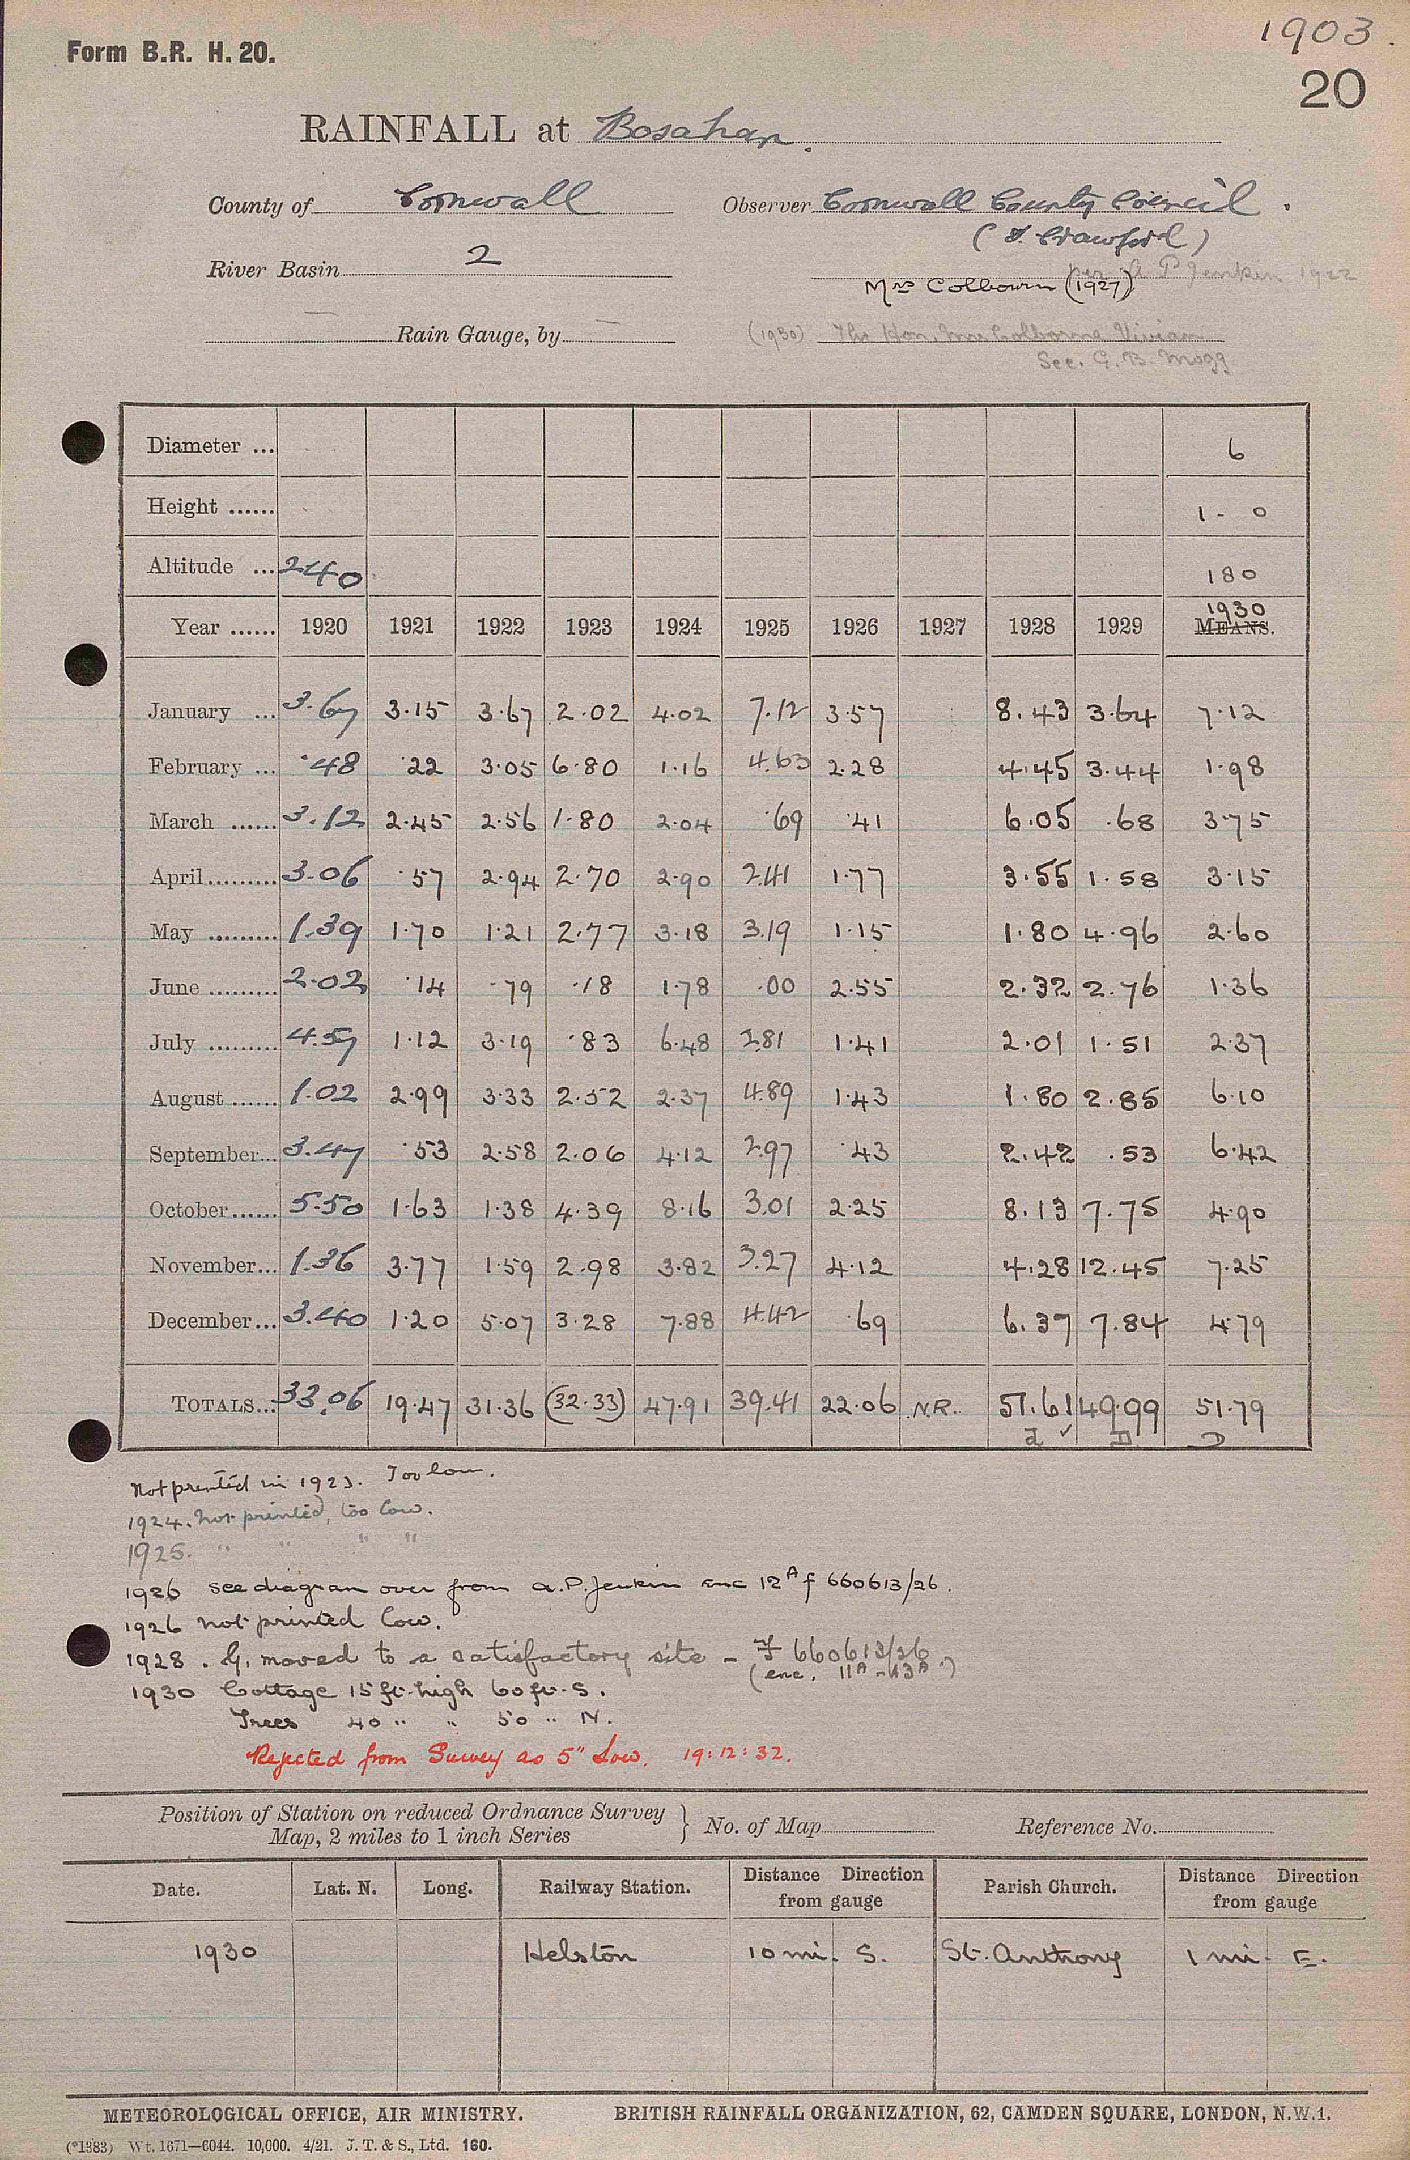 1903.
Form B.R. H. 20.
20
RAINFALL at Bosahan.
County of Cornwall Observer Cornwall County Council.
(F. Crawford)
River Basin 2 per A P Jenkin 1922
Mrs Colbourn (1927)
Rain Gauge, by (1930) The Hon. Mrs Colborne Vivian
See. G. B. Mogg
Diameter ... 6
Height ...... 1 - 0
Altitude ... 240 180
Year ...... 1920 1921 1922 1923 1924 1925 1926 1927 1928 1929 1930 MEANS.
January ... 3.67 3.15 3.67 2.02 4.02 7.12 3.57 8.43 3.64 7.12
February ... .48 .22 3.05 6.80 1.16 4.63 2.28 4.45 3.44 1.98
March ...... 3.12 2.45 2.56 1.80 2.04 .69 .41 6.05 .68 3.75
April......... 3.06 .57 2.94 2.70 2.90 2.41 1.77 3.55 1.58 3.15
May ......... 1.39 1.70 1.21 2.77 3.18 3.19 1.15 1.80 4.96 2.60
June ......... 2.02 .14 .79 .18 1.78 .00 2.55 2.32 2.76 1.36
July ......... 4.57 1.12 3.19 .83 6.48 2.81 1.41 2.01 1.51 2.37
August ...... 1.02 2.99 3.33 2.52 2.37 4.89 1.43 1.80 2.85 6.10
September... 3.47 .53 2.58 2.06 4.12 2.97 .43 2.42 .53 6.42
October...... 5.50 1.63 1.38 4.39 8.16 3.01 2.25 8.13 7.75 4.90
November... 1.36 3.77 1.59 2.98 3.82 3.27 4.12 4.28 12.45 7.25
December... 3.40 1.20 5.07 3.28 7.88 4.42 .69 6.37 7.84 4.79
TOTALS... 33.06 19.47 31.36 (32.33) 47.91 39.41 22.06 N.R. 51.61 49.99 51.79
Not printed in 1923. Too low.
1924. Not printed, too low.
1925. " " " "
1926 see diagram over from A.P. Jenkin enc 12A f 660613/26.
1926 not printed low.
1928. G. moved to a satisfactory site - F 660613/26
(enc. 11A-13A.)
1930 Cottage 15 ft. high 60 ft. S.
Trees 40 " " 50 " N.
Rejected from Survey as 5" Low. 19:12:32.
Position of Station on reduced Ordnance Survey Map, 2 miles to 1 inch Series } No. of Map Reference No.
Date. Lat. N. Long. Railway Station. Distance Direction from gauge Parish Church. Distance Direction from gauge
1930 Helston 10 mi. S. St. Anthony 1 mi. E.
METEOROLOGICAL OFFICE, AIR MINISTRY. BRITISH RAINFALL ORGANIZATION, 62, CAMDEN SQUARE, LONDON, N.W.1.
(*1383) Wt. 1671—6044. 10,000. 4/21. J. T. & S., Ltd. 160.